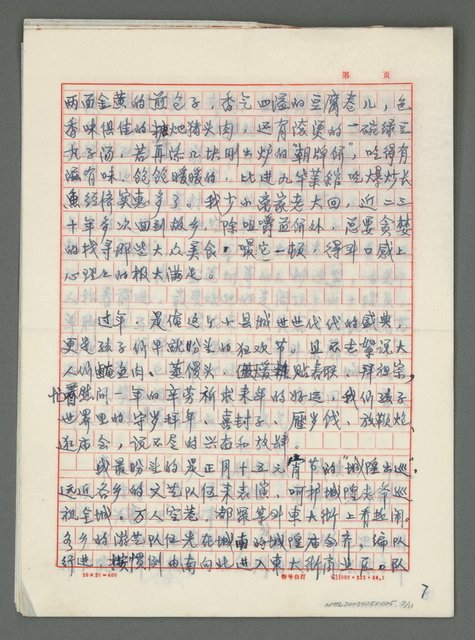 第 页
两面金黄的煎包子，香气四溢的豆腐卷儿，色
香味俱佳的糖炮猪头肉，还有滚烫的一碗绿豆
丸子汤，若再添几块刚出炉的"朝牌饼"，吃得有
滋有味、饱饱暖暖的，比进九华菜馆吃爆炒长
鱼经倍实惠多了！我少小离家老大回，近二三
十年多次回到故乡，除咀嚼煎饼外，总要贪婪
的找寻那些大众美食，啜它一顿，得到口感上
心理上的极大满足。
过年，是俺这个小县城世世代代的盛典，
更是孩子们早就盼望的狂欢节。且不去絮说大
人们腌鱼肉、蒸馒头 贴春联、拜祖宗，
忙着慰问一年的辛劳祈求来年的好运，我们孩子
世界里的守岁拜年、喜封子、压岁钱、放鞭炮、
逛庙会，说不尽的兴奋和放肆。
我最盼望的是正月十五元宵节的"城隍出巡"。
远近各乡的文艺队伍来表演，呵护城隍老爷巡
视全城。万人空巷，都聚集到东大街上看热闹。
各乡的游艺队伍先在城南的城隍庙会齐，编队
行进，按惯例由南向北进入东大街商业区。队
20×20=400
7
NMTL20050050025